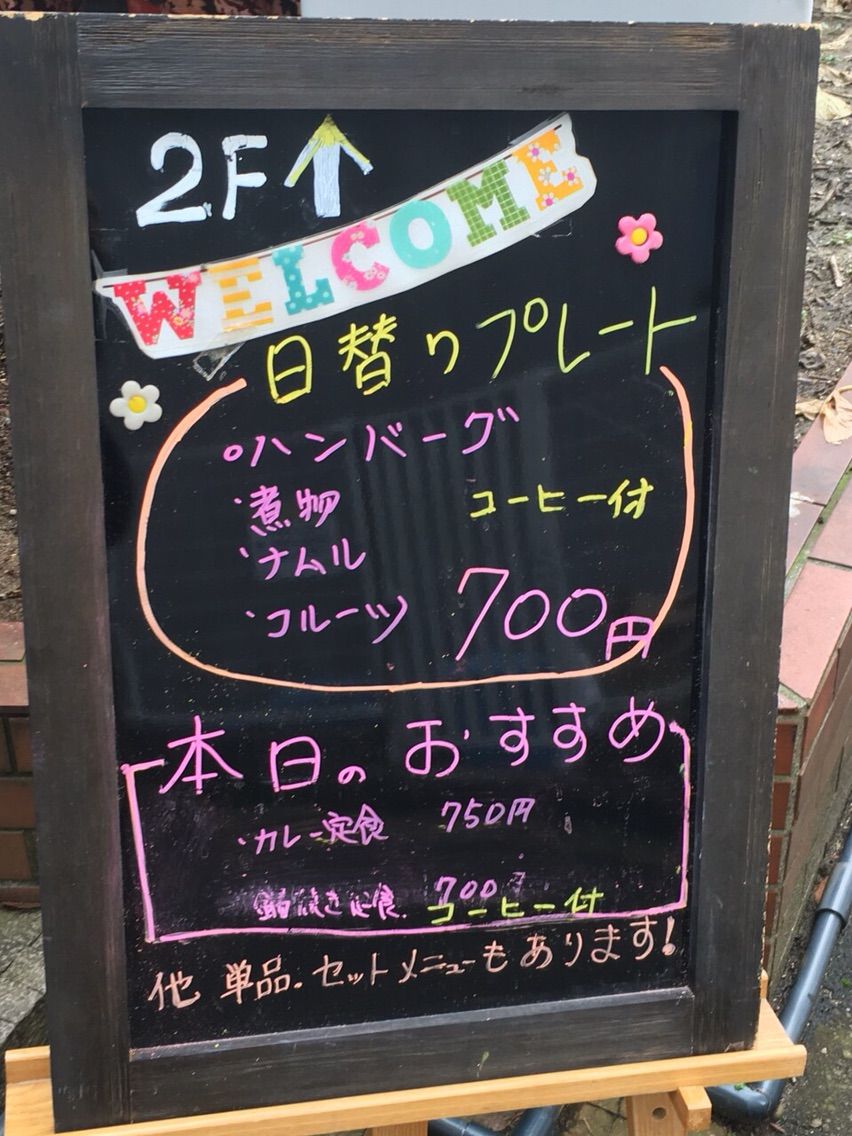 2F↑
WELCOME
日替りプレート
ハンバーグ
・煮物
コーヒー付
・ナムル
・フルーツ
700円
本日のおすすめ
・カレー定食 750円
焼き定食 700
コーヒー付
他 単品・セットメニューもあります!